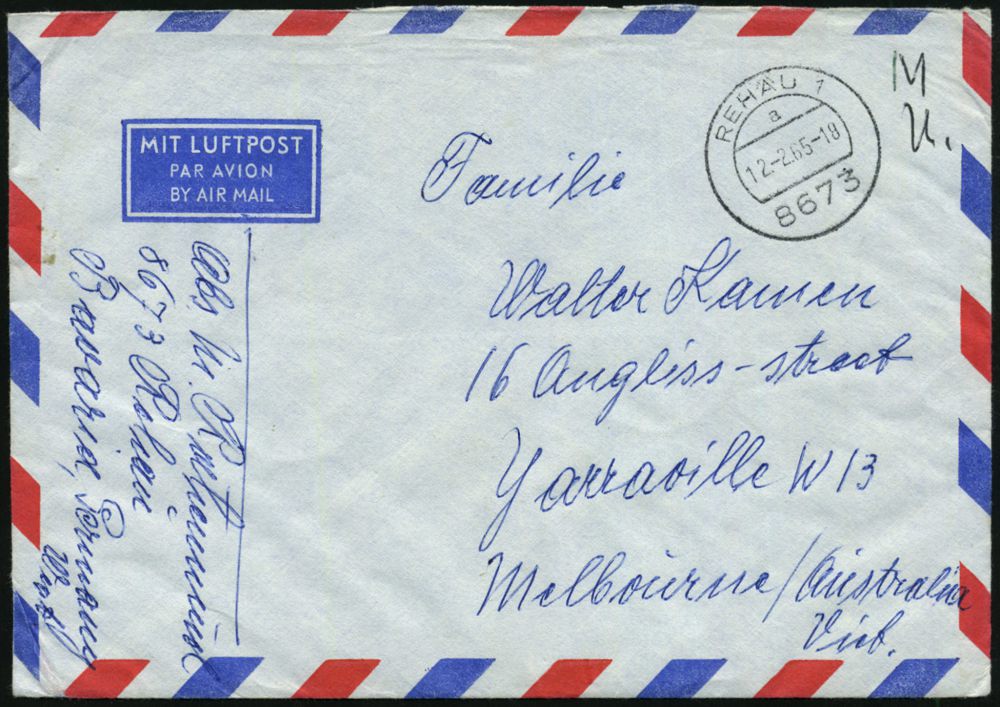 MIT LUFTPOST
PAR AVION
BY AIR MAIL
REHAU 1
a
12.-2.65-18
8673
M
U.
Familie
Walter Kamen
16 Angliss-street
Yarraville W 13
Melbourne/Australia
Vict.
Abs.
8673 Rehau
Bavaria, Germany
West